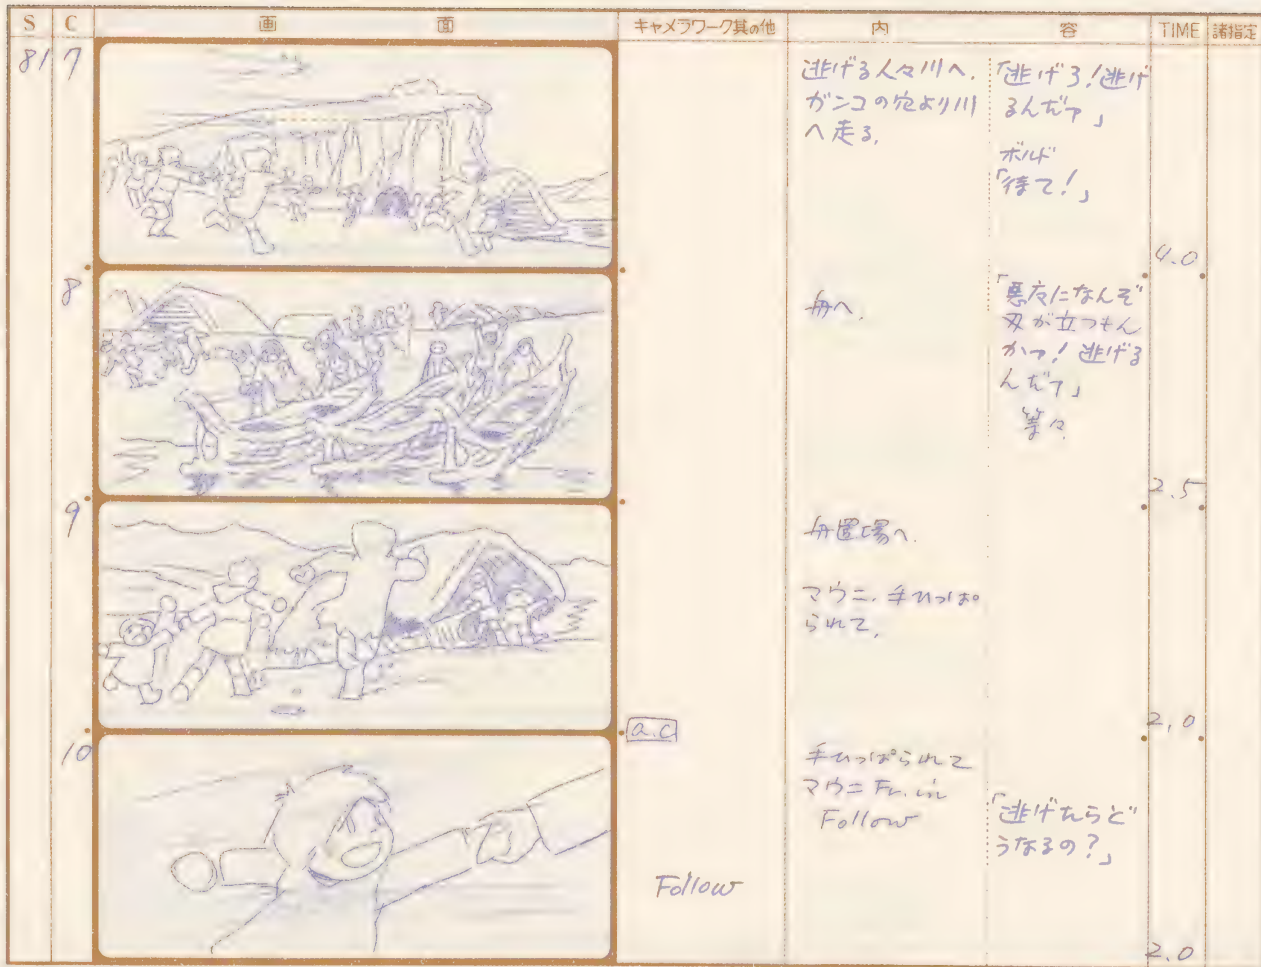 S C 画 面 キャメラワーク其の他 内 容 TIME 諸指定
81 7
逃げる人々川へ.
ガンコの穴より川
へ走る.
「逃げろ!逃げ
るんだァ」
ボルド
「待て!」
4.0
8
舟へ.
「悪魔になんぞ
刃が立つもん
かァ!逃げる
んだァ」
等々
2.5
9
舟置場へ.
マウニ.手ひっぱ
られて.
2.0
10
a.c
手ひっぱられて
マウニ Fr. in
Follow
「逃げたらど
うなるの?」
Follow
2.0